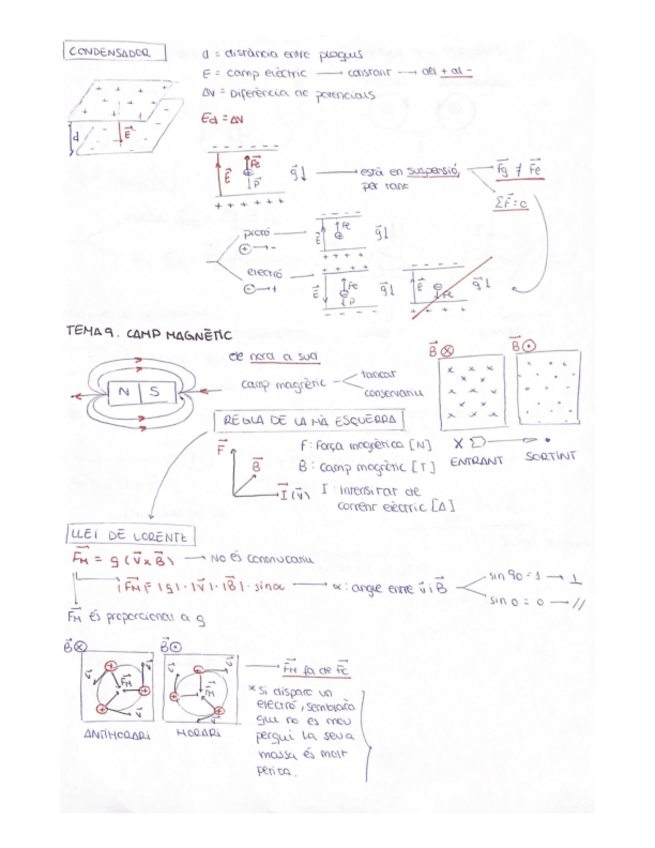 CONDENSADOR
d = distància entre plaques
E = camp elèctric → constant → del + al -
ΔV = Diferència de potencials
Ed = ΔV
d
E
Fe
E
P
g↓
està en suspensió,
per tant
Fg ≠ Fe
ΣF = 0
protó
⊕ → -
E
Fe
g↓
electró
⊖ → +
E
Fe
P
g↓
E
Fe
g↓
TEMA 9. CAMP MAGNÈTIC
de nord a sud
N S
camp magnètic
tancat
conservatiu
B ⊗
B ⊙
ENTRANT
SORTINT
REGLA DE LA MÀ ESQUERRA
F
B
I (v)
F: Força magnètica [N]
B: camp magnètic [T]
I: intensitat de
corrent elèctric [A]
LLEI DE LORENTE
FM = q (v x B) → No és conmutatiu
|FM| = |q| · |v| · |B| · sinα → α: angle entre v i B
sin 90 = 1 → ⊥
sin 0 = 0 → //
FM és proporcional a q
B ⊗
B ⊙
FM
FM
ANTIHORARI
HORARI
FM fa de Fc
* Si disparo un
electró, semblarà
que no es mou
perquè la seva
massa és molt
petita.